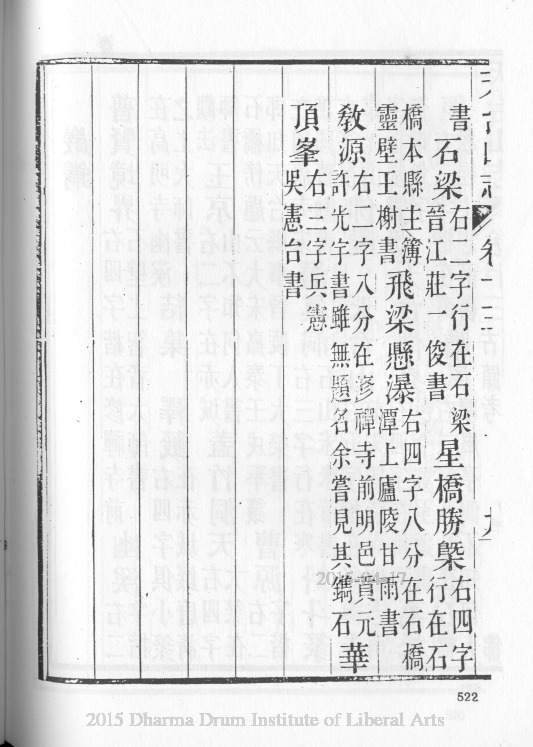 書石梁右二字行在石梁晉江莊一俊書星橋勝槩右四字行在石
橋本縣主簿靈壁王榭書飛梁懸瀑右四字八分在石橋潭上廬陵甘雨書
敎源右二字八分在修禪寺前明邑貢元許光宇書雖無題名余嘗見其鐫石華
頂峯右三字兵憲吳憲台書
九
522
2015 Dharma Drum Institute of Liberal Arts